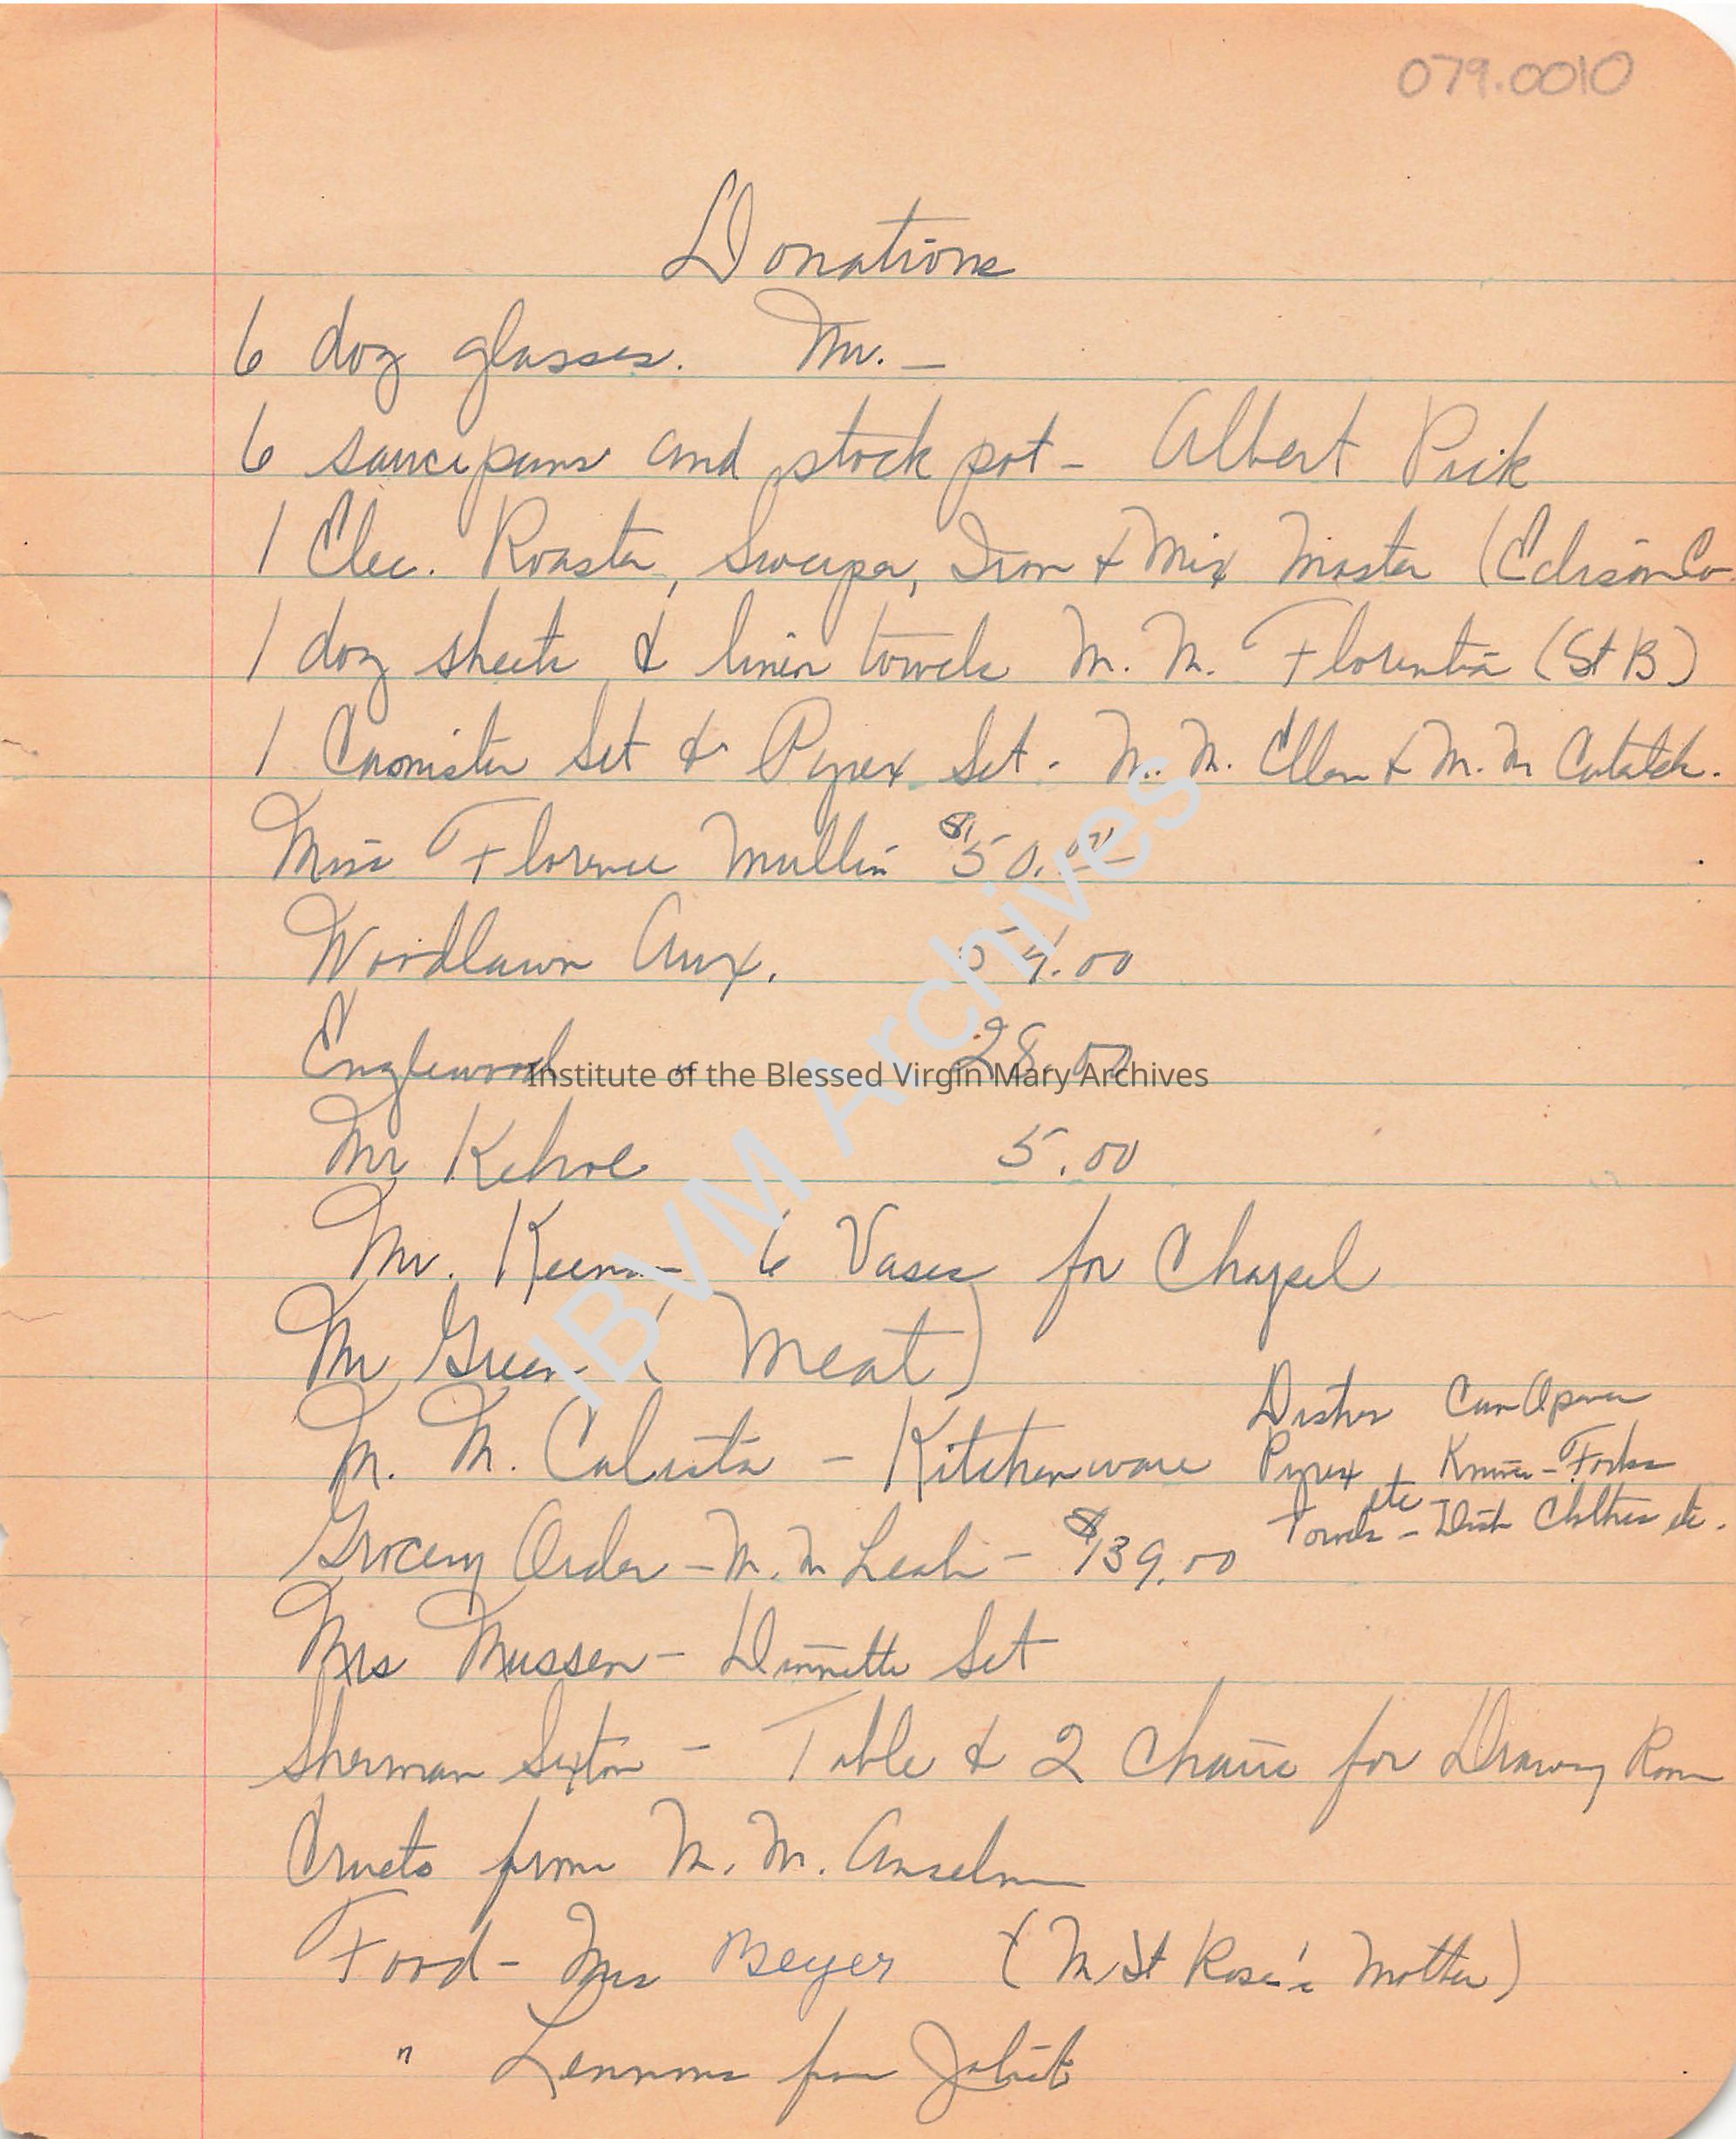 079.0010
Donations
6 doz glasses. Mr. —
6 sauce pans and stock pot - Albert Pick
1 Elec. Roaster, Sweeper, Iron & Mix Master (Edison Co
1 doz sheets & linen towels M. M. Florentia (St B)
1 Cannister Set & Pyrex Set - M. M. Ellen & M. M
Miss Florence Mullin $50.00
Woodlawn Aux. 54.00
Englewood " 28.00
Mr Kehoe 5.00
Mr. Keenan 6 Vases for Chapel
Mr Green (Meat)
M. M. Calista - Kitchenware Dishes Can Opener
Pyrex, Knives - Forks
etc
Towels - Dish Clothes etc.
Grocery Order - M. M Leah - $139.00
Mrs Mussen - Dinnette Set
Sherman Sexton - Table & 2 Chairs for Drawing Room
Cruets from M. M. Anselm
Food - Mrs Beyer (M St Rose's Mother)
" Lennons from Joliet
Institute of the Blessed Virgin Mary Archives
IBVM Archives